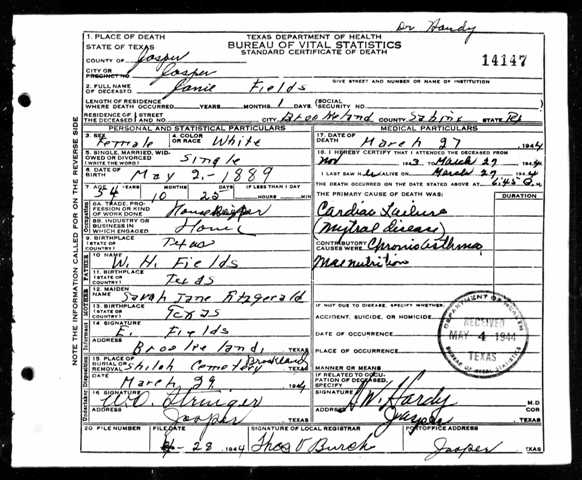 Dr Hardy
TEXAS DEPARTMENT OF HEALTH
BUREAU OF VITAL STATISTICS
STANDARD CERTIFICATE OF DEATH
14147
1. PLACE OF DEATH
STATE OF TEXAS
COUNTY OF Jasper
CITY OR PRECINCT NO. Jasper
GIVE STREET AND NUMBER OR NAME OF INSTITUTION
2. FULL NAME OF DECEASED Janie Fields
LENGTH OF RESIDENCE WHERE DEATH OCCURRED YEARS MONTHS 1 DAYS (SOCIAL SECURITY NO.)
RESIDENCE OF THE DECEASED STREET AND NO. CITY Brookeland COUNTY Sabine STATE
PERSONAL AND STATISTICAL PARTICULARS
3. SEX Female
4. COLOR OR RACE White
5. SINGLE, MARRIED, WIDOWED OR DIVORCED (WRITE THE WORD) Single
6. DATE OF BIRTH May 2 - 1889
7. AGE YEARS 54 MONTHS 10 DAYS 25 IF LESS THAN 1 DAY HOURS MIN
8A. TRADE, PROFESSION OR KIND OF WORK DONE
8B. INDUSTRY OR BUSINESS IN WHICH ENGAGED Home
9. BIRTHPLACE (STATE OR COUNTRY) Texas
10. NAME W. H. Fields
11. BIRTHPLACE (STATE OR COUNTRY) Texas
12. MAIDEN NAME Sarah Jane Fitzgerald
13. BIRTHPLACE (STATE OR COUNTRY) Texas
14. SIGNATURE E. Fields
ADDRESS Brookeland, TEXAS
15. PLACE OF BURIAL OR REMOVAL Shiloh Cemetery Brookland TEXAS
DATE March 29 1944
16. SIGNATURE Stringer
ADDRESS Jasper TEXAS
MEDICAL PARTICULARS
17. DATE OF DEATH March 27 1944
18. I HEREBY CERTIFY THAT I ATTENDED THE DECEASED FROM
Nov 1943 TO March 27 1944
I LAST SAW her ALIVE ON March 27 1944
THE DEATH OCCURRED ON THE DATE STATED ABOVE AT 6:45 M.
THE PRIMARY CAUSE OF DEATH WAS: DURATION
Cardiac Failure
(Mytral disease)
CONTRIBUTORY CAUSES WERE: Chronic asthma
Malnutrition
IF NOT DUE TO DISEASE, SPECIFY WHETHER:
ACCIDENT, SUICIDE, OR HOMICIDE
DATE OF OCCURRENCE
PLACE OF OCCURRENCE
MANNER OR MEANS
IF RELATED TO OCCUPATION OF DECEASED, SPECIFY
SIGNATURE W. Hardy M.D.
COR
ADDRESS Jasper TEXAS
DEPARTMENT OF HEALTH
RECEIVED
MAY 4 1944
TEXAS
BUREAU OF VITAL STATISTICS
20. FILE NUMBER FILE DATE 4-28 1944 SIGNATURE OF LOCAL REGISTRAR Theo V Burch POSTOFFICE ADDRESS Jasper TEXAS
NOTE THE INFORMATION CALLED FOR ON THE REVERSE SIDE
Occupation
FATHER
MOTHER
Informant
Disposition
Undertaker